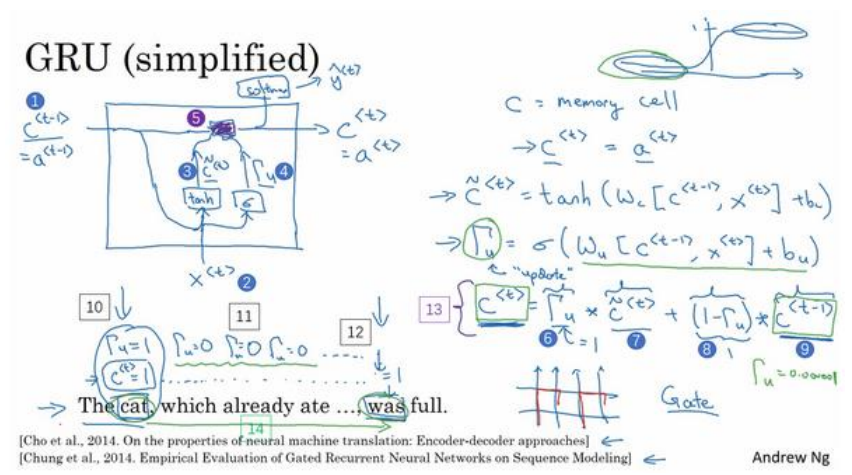 GRU (simplified)
softmax → ŷ<t>
1
c<t-1>
= a<t-1>
5
c<t>
= a<t>
3 c̃<t> Γu 4
tanh σ
x<t> 2
c = memory cell
→ c<t> = a<t>
→ c̃<t> = tanh (Wc [c<t-1>, x<t>] + bc)
→ Γu = σ (Wu [c<t-1>, x<t>] + bu)
"update"
13 c<t> = Γu * c̃<t> + (1-Γu) * c<t-1>
6 = 1 7 8 1 9
Γu = 0.000001
Gate
10 11 12
Γu=1 Γu=0 Γu=0 Γu=0 .....
→ c<t>=1 ............. =1
→ The cat, which already ate ..., was full.
14
[Cho et al., 2014. On the properties of neural machine translation: Encoder-decoder approaches] ←
[Chung et al., 2014. Empirical Evaluation of Gated Recurrent Neural Networks on Sequence Modeling] ←
Andrew Ng